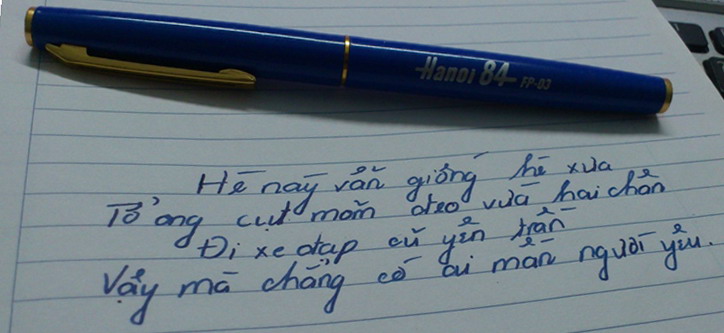 Hanoi 84 FP-03
Hè này vẫn giống hè xưa
Tổ ong cụt mõm đeo vừa hai chân
Đi xe đạp cũ yên trần
Vậy mà chẳng có ai mần người yêu.